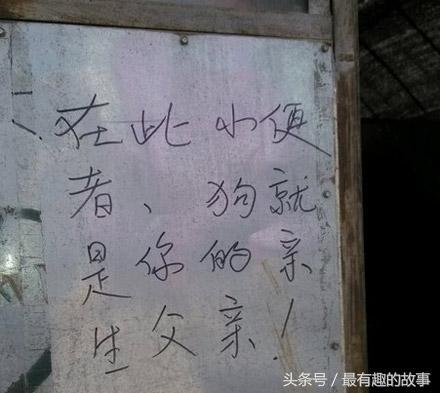 在此小便
者、狗就
是你的亲
生父亲！
头条号／最有趣的故事